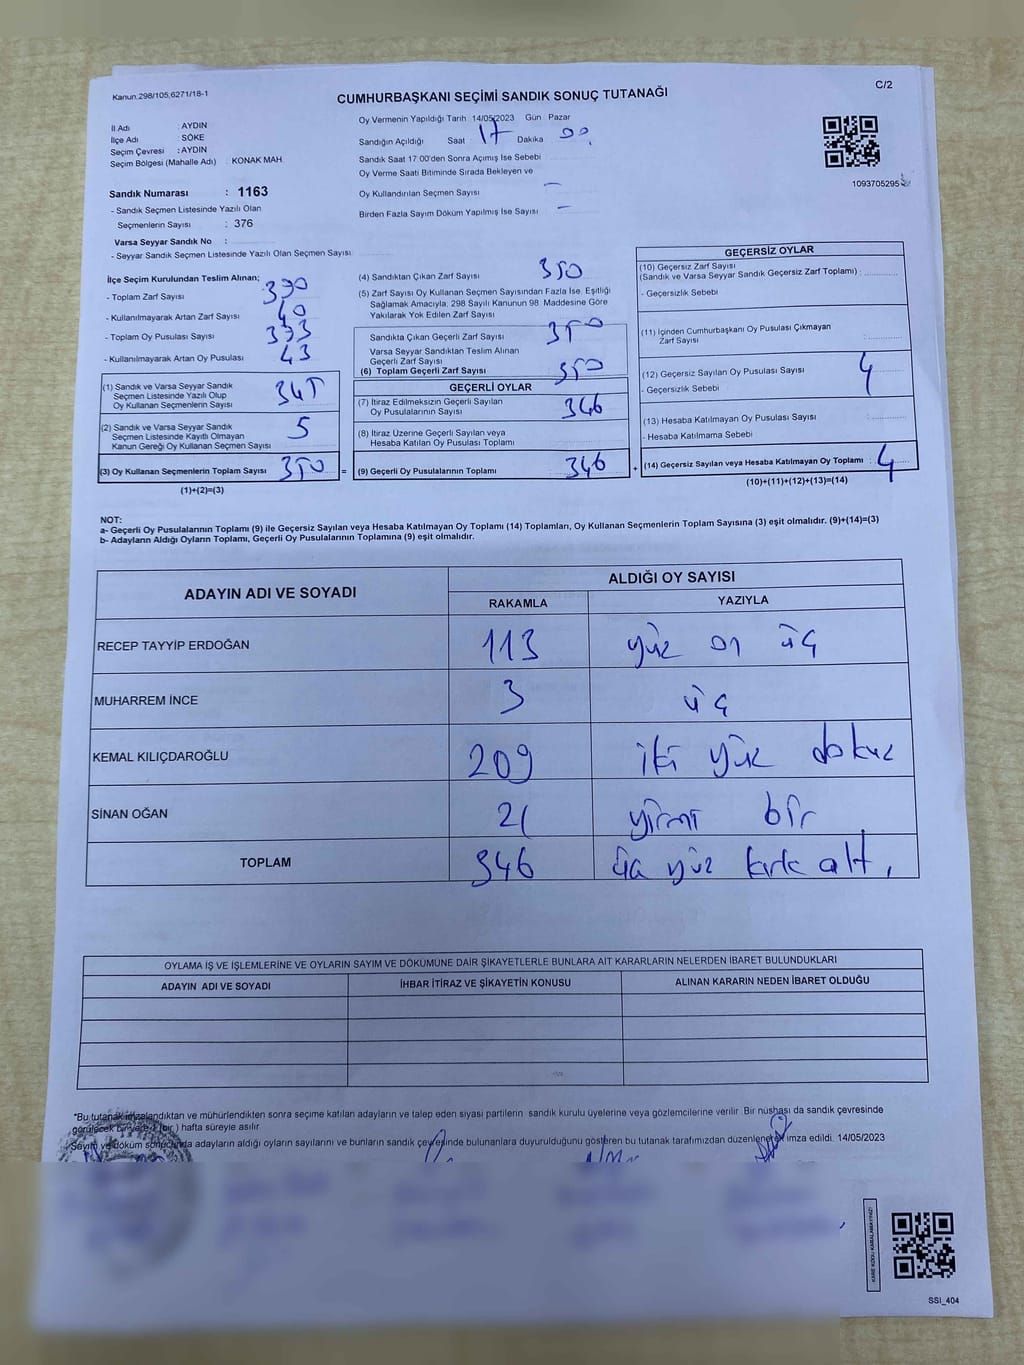 Kanun:298/105,6271/18-1
C/2
CUMHURBAŞKANI SEÇİMİ SANDIK SONUÇ TUTANAĞI
İl Adı : AYDIN
İlçe Adı : SÖKE
Seçim Çevresi : AYDIN
Seçim Bölgesi (Mahalle Adı) : KONAK MAH
Sandık Numarası : 1163
- Sandık Seçmen Listesinde Yazılı Olan
Seçmenlerin Sayısı : 376
Varsa Seyyar Sandık No :
- Seyyar Sandık Seçmen Listesinde Yazılı Olan Seçmen Sayısı:
Oy Vermenin Yapıldığı Tarih : 14/05/2023 Gün Pazar
Sandığın Açıldığı Saat : 17 Dakika : 00
Sandık Saat 17:00'den Sonra Açımış İse Sebebi
Oy Verme Saati Bitiminde Sırada Bekleyen ve
Oy Kullandırılan Seçmen Sayısı : —
Birden Fazla Sayım Döküm Yapılmış İse Sayısı : —
1093705295
İlçe Seçim Kurulundan Teslim Alınan;
- Toplam Zarf Sayısı : 390
- Kullanılmayarak Artan Zarf Sayısı : 40
- Toplam Oy Pusulası Sayısı : 393
- Kullanılmayarak Artan Oy Pusulası : 43
(1) Sandık ve Varsa Seyyar Sandık
Seçmen Listesinde Yazılı Olup
Oy Kullanan Seçmenlerin Sayısı : 345
(2) Sandık ve Varsa Seyyar Sandık
Seçmen Listesinde Kayıtlı Olmayan
Kanun Gereği Oy Kullanan Seçmen Sayısı : 5
(3) Oy Kullanan Seçmenlerin Toplam Sayısı : 350
(1)+(2)=(3)
=
(4) Sandıktan Çıkan Zarf Sayısı : 350
(5) Zarf Sayısı Oy Kullanan Seçmen Sayısından Fazla İse, Eşitliği
Sağlamak Amacıyla, 298 Sayılı Kanunun 98. Maddesine Göre
Yakılarak Yok Edilen Zarf Sayısı
Sandıkta Çıkan Geçerli Zarf Sayısı : 350
Varsa Seyyar Sandıktan Teslim Alınan
Geçerli Zarf Sayısı
(6) Toplam Geçerli Zarf Sayısı : 350
GEÇERLİ OYLAR
(7) İtiraz Edilmeksizin Geçerli Sayılan
Oy Pusulalarının Sayısı : 346
(8) İtiraz Üzerine Geçerli Sayılan veya
Hesaba Katılan Oy Pusulası Toplamı
(9) Geçerli Oy Pusulalarının Toplamı : 346
+
GEÇERSİZ OYLAR
(10) Geçersiz Zarf Sayısı
(Sandık ve Varsa Seyyar Sandık Geçersiz Zarf Toplamı) :
- Geçersizlik Sebebi
(11) İçinden Cumhurbaşkanı Oy Pusulası Çıkmayan
Zarf Sayısı
(12) Geçersiz Sayılan Oy Pusulası Sayısı : 4
- Geçersizlik Sebebi
(13) Hesaba Katılmayan Oy Pusulası Sayısı :
- Hesaba Katılmama Sebebi
(14) Geçersiz Sayılan veya Hesaba Katılmayan Oy Toplamı : 4
(10)+(11)+(12)+(13)=(14)
NOT:
a- Geçerli Oy Pusulalarının Toplamı (9) ile Geçersiz Sayılan veya Hesaba Katılmayan Oy Toplamı (14) Toplamları, Oy Kullanan Seçmenlerin Toplam Sayısına (3) eşit olmalıdır. (9)+(14)=(3)
b- Adayların Aldığı Oyların Toplamı, Geçerli Oy Pusulalarının Toplamına (9) eşit olmalıdır.
ADAYIN ADI VE SOYADI
ALDIĞI OY SAYISI
RAKAMLA YAZIYLA
RECEP TAYYİP ERDOĞAN 113 yüz on üç
MUHARREM İNCE 3 üç
KEMAL KILIÇDAROĞLU 209 iki yüz dokuz
SİNAN OĞAN 21 yirmi bir
TOPLAM 346 üç yüz kırk altı
OYLAMA İŞ VE İŞLEMLERİNE VE OYLARIN SAYIM VE DÖKÜMÜNE DAİR ŞİKAYETLERLE BUNLARA AİT KARARLARIN NELERDEN İBARET BULUNDUKLARI
ADAYIN ADI VE SOYADI İHBAR İTİRAZ VE ŞİKAYETİN KONUSU ALINAN KARARIN NEDEN İBARET OLDUĞU
*Bu tutanak imzalandıktan ve mühürlendikten sonra seçime katılan adayların ve talep eden siyasi partilerin sandık kurulu üyelerine veya gözlemcilerine verilir. Bir nüshası da sandık çevresinde
görülecek bir yere 1 (bir ) hafta süreyle asılır.
Sayım ve döküm sonucunda adayların aldığı oyların sayılarını ve bunların sandık çevresinde bulunanlara duyurulduğunu gösteren bu tutanak tarafımızdan düzenlenerek imza edildi. 14/05/2023
KARE KODU KARALAMAYINIZ!
SSI_404